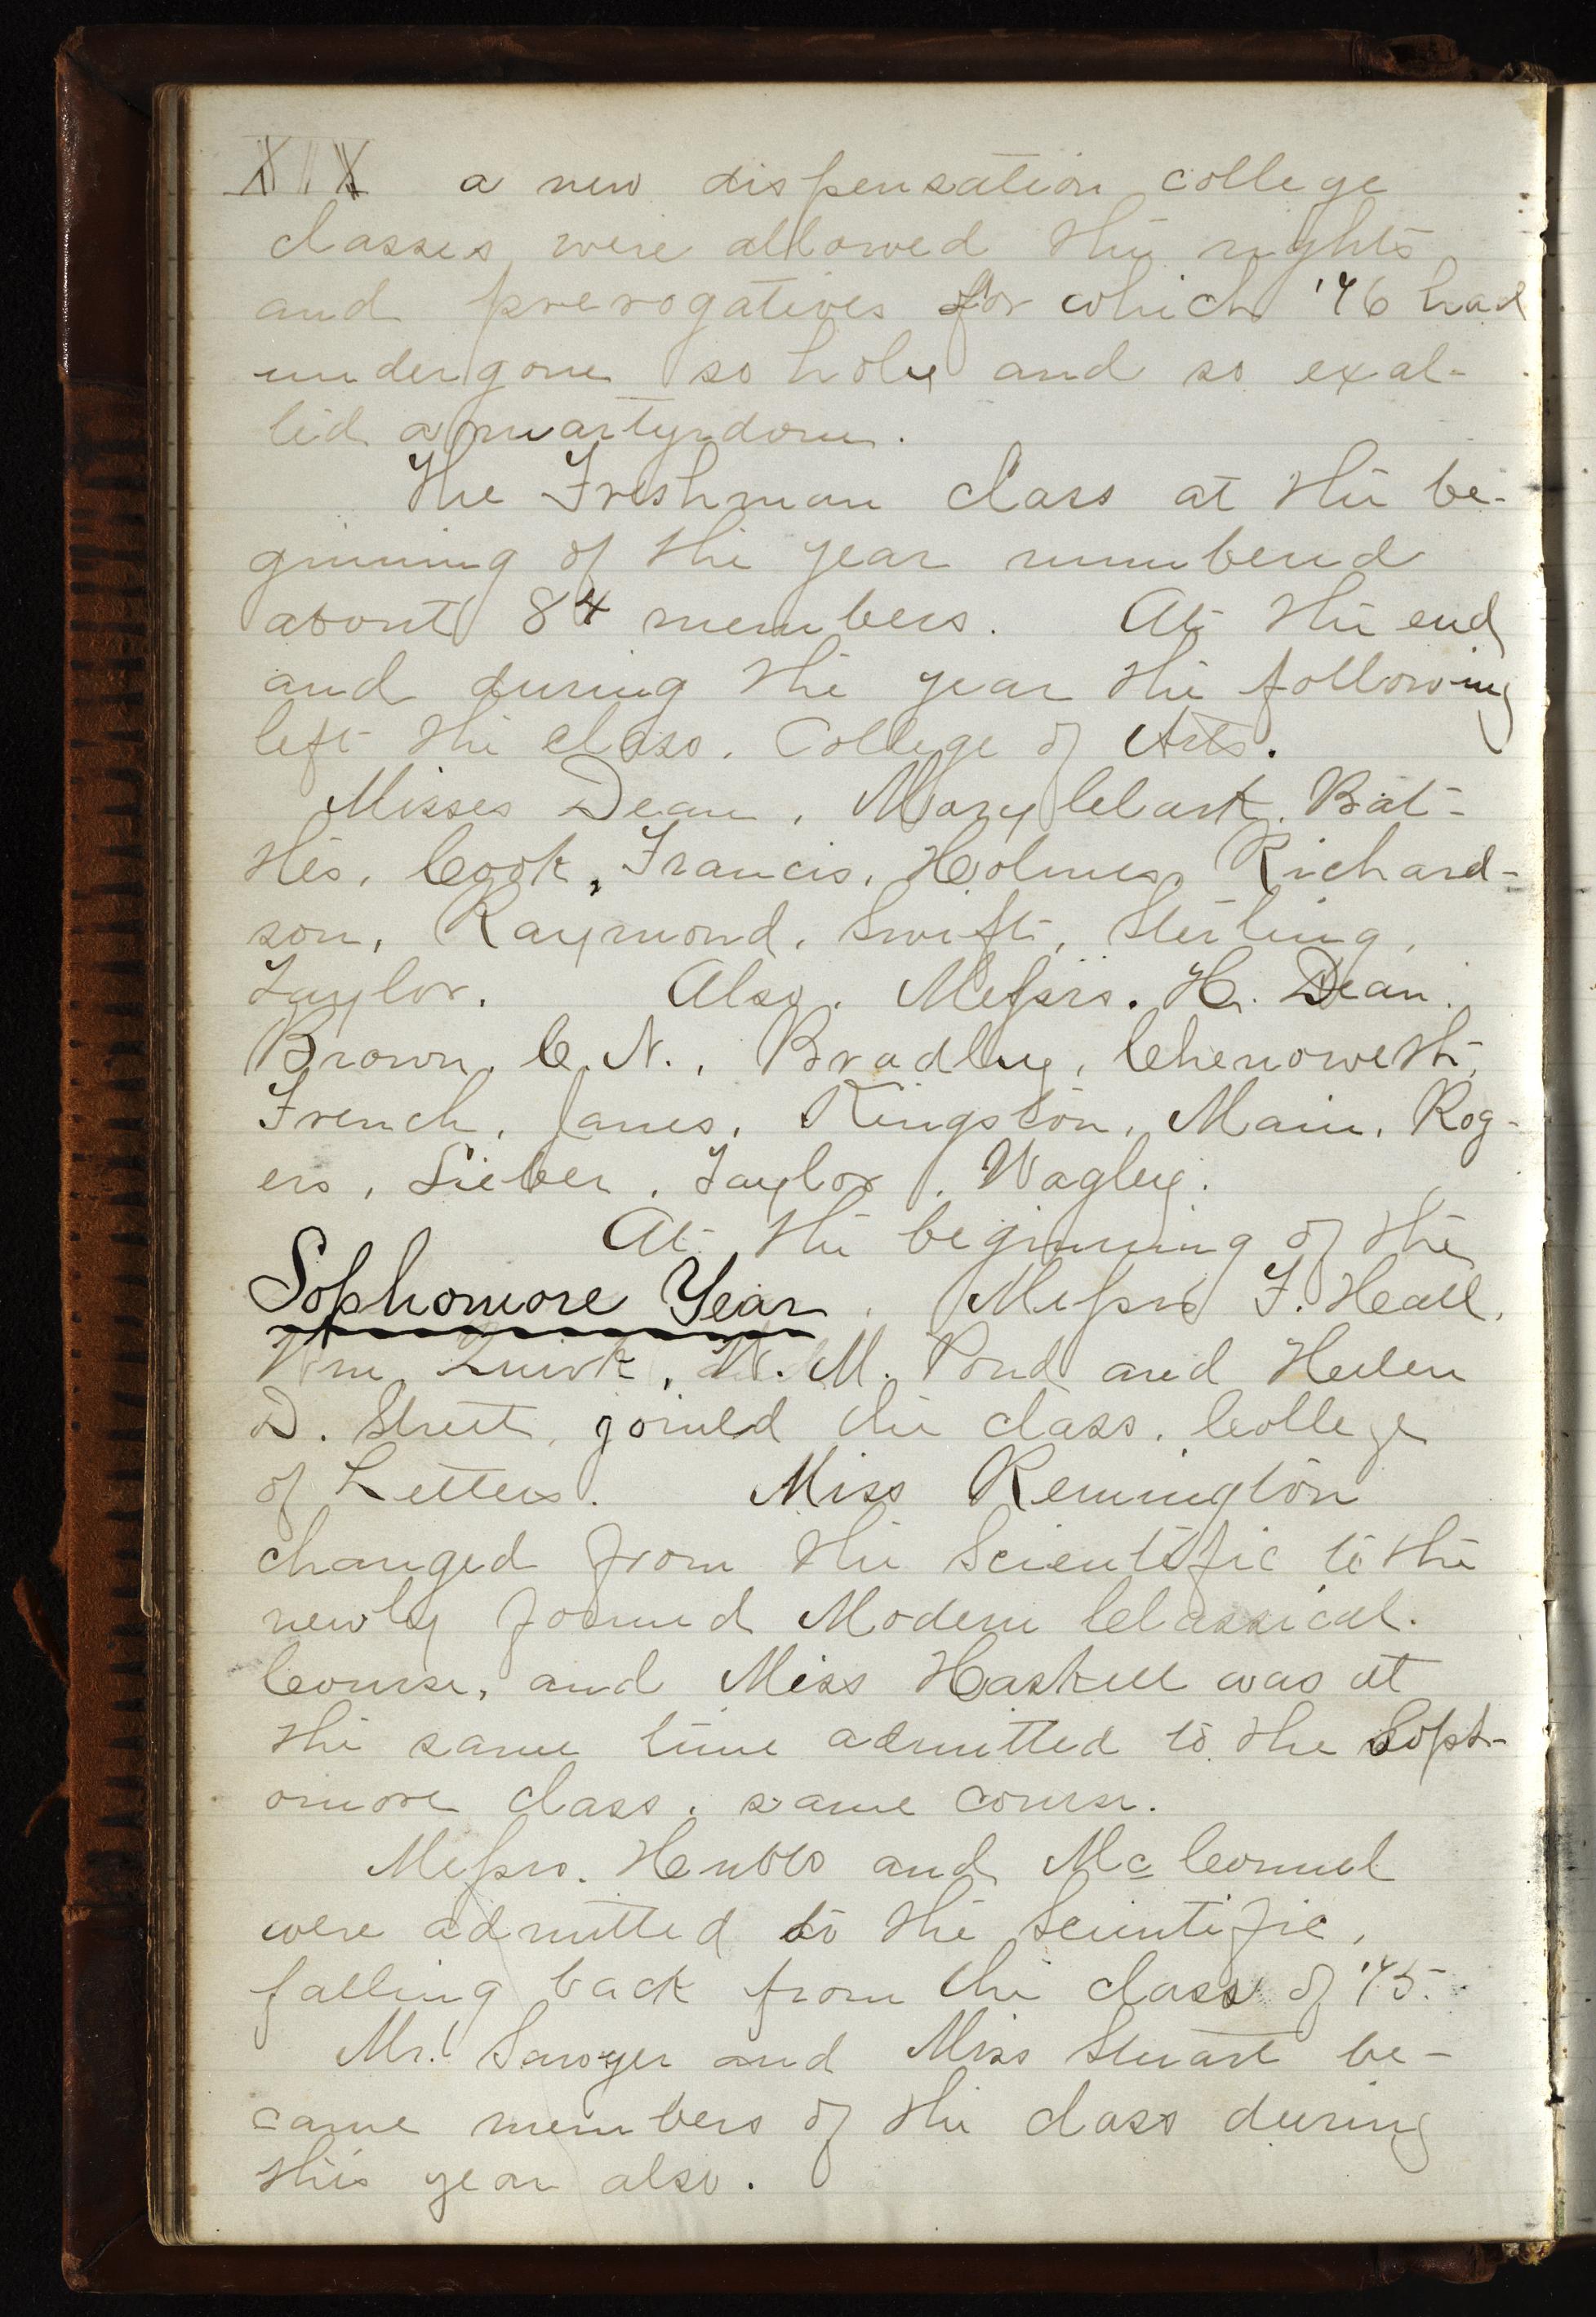 XIX a new dispensation college
classes were allowed the rights
and prerogatives for which '76 had
undergone so holy and so exal-
ted a martyrdom.
The Freshman class at the be-
ginning of the year numbered
about 84 members. At the end
and during the year the following
left the class. College of Arts.
Misses Dean, Mary Clark, Bat-
tés, Cook, Francis, Holmes, Richard-
son, Raymond, Swift, Sterling,
Taylor. Also, Messrs. H. Dean.
Brown, C. N., Bradley, Chenoweth,
French, James, Kingston, Main, Rog-
ers, Sieber, Taylor, Wagley.
At the beginning of the
Sophomore Year. Messrs F. Hall,
Wm Quirk, W. M. Pond and Helen
D. Street, joined the class, College
of Letters. Miss Remington
changed from the Scientific to the
newly formed Modern Classical.
Course, and Miss Haskell was at
the same time admitted to the Soph-
omore class, same course.
Messrs. Hubbs and McConnel
were admitted to the Scientific,
falling back from the class of '75.
Mr. Sawyer and Miss Stuart be-
came members of the class during
this year also.